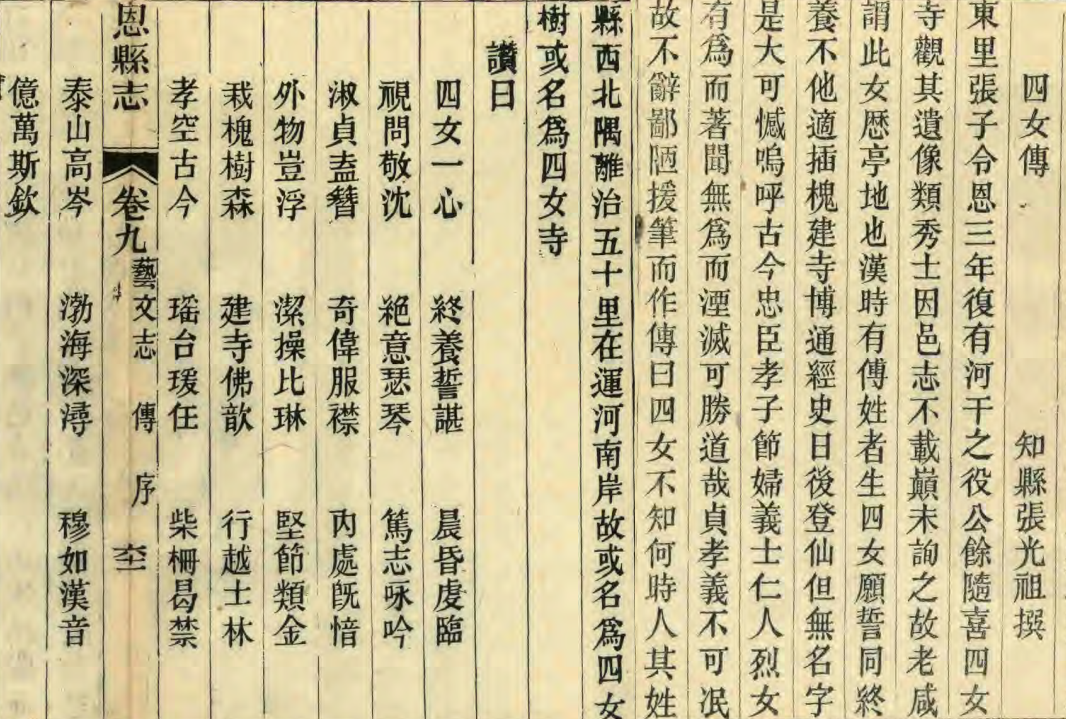 四女傳 知縣張光祖撰
東里張子令恩三年復有河干之役公餘隨喜四女
寺觀其遺像類秀士因邑志不載巔末詢之故老咸
謂此女歷亭地也漢時有傅姓者生四女願誓同終
養不他適插槐建寺博通經史日後登仙但無名字
是大可憾嗚呼古今忠臣孝子節婦義士仁人烈女
有爲而著聞無爲而湮滅可勝道哉貞孝義不可泯
故不辭鄙陋援筆而作傳曰四女不知何時人其姓
縣西北隅離治五十里在運河南岸故或名爲四女
樹或名爲四女寺
讚曰
四女一心 終養誓諶 晨昏虔臨
視問敬沈 絕意瑟琴 篤志咏吟
淑貞盍簪 奇偉服襟 內處旣愔
外物豈浮 潔操比琳 堅節類金
栽槐樹森 建寺佛歆 行越士林
孝空古今 瑶台瑗任 柴柵曷禁
恩縣志 卷九 藝文志 傳 序
泰山高岑 渤海深潯 穆如漢音
億萬斯欽